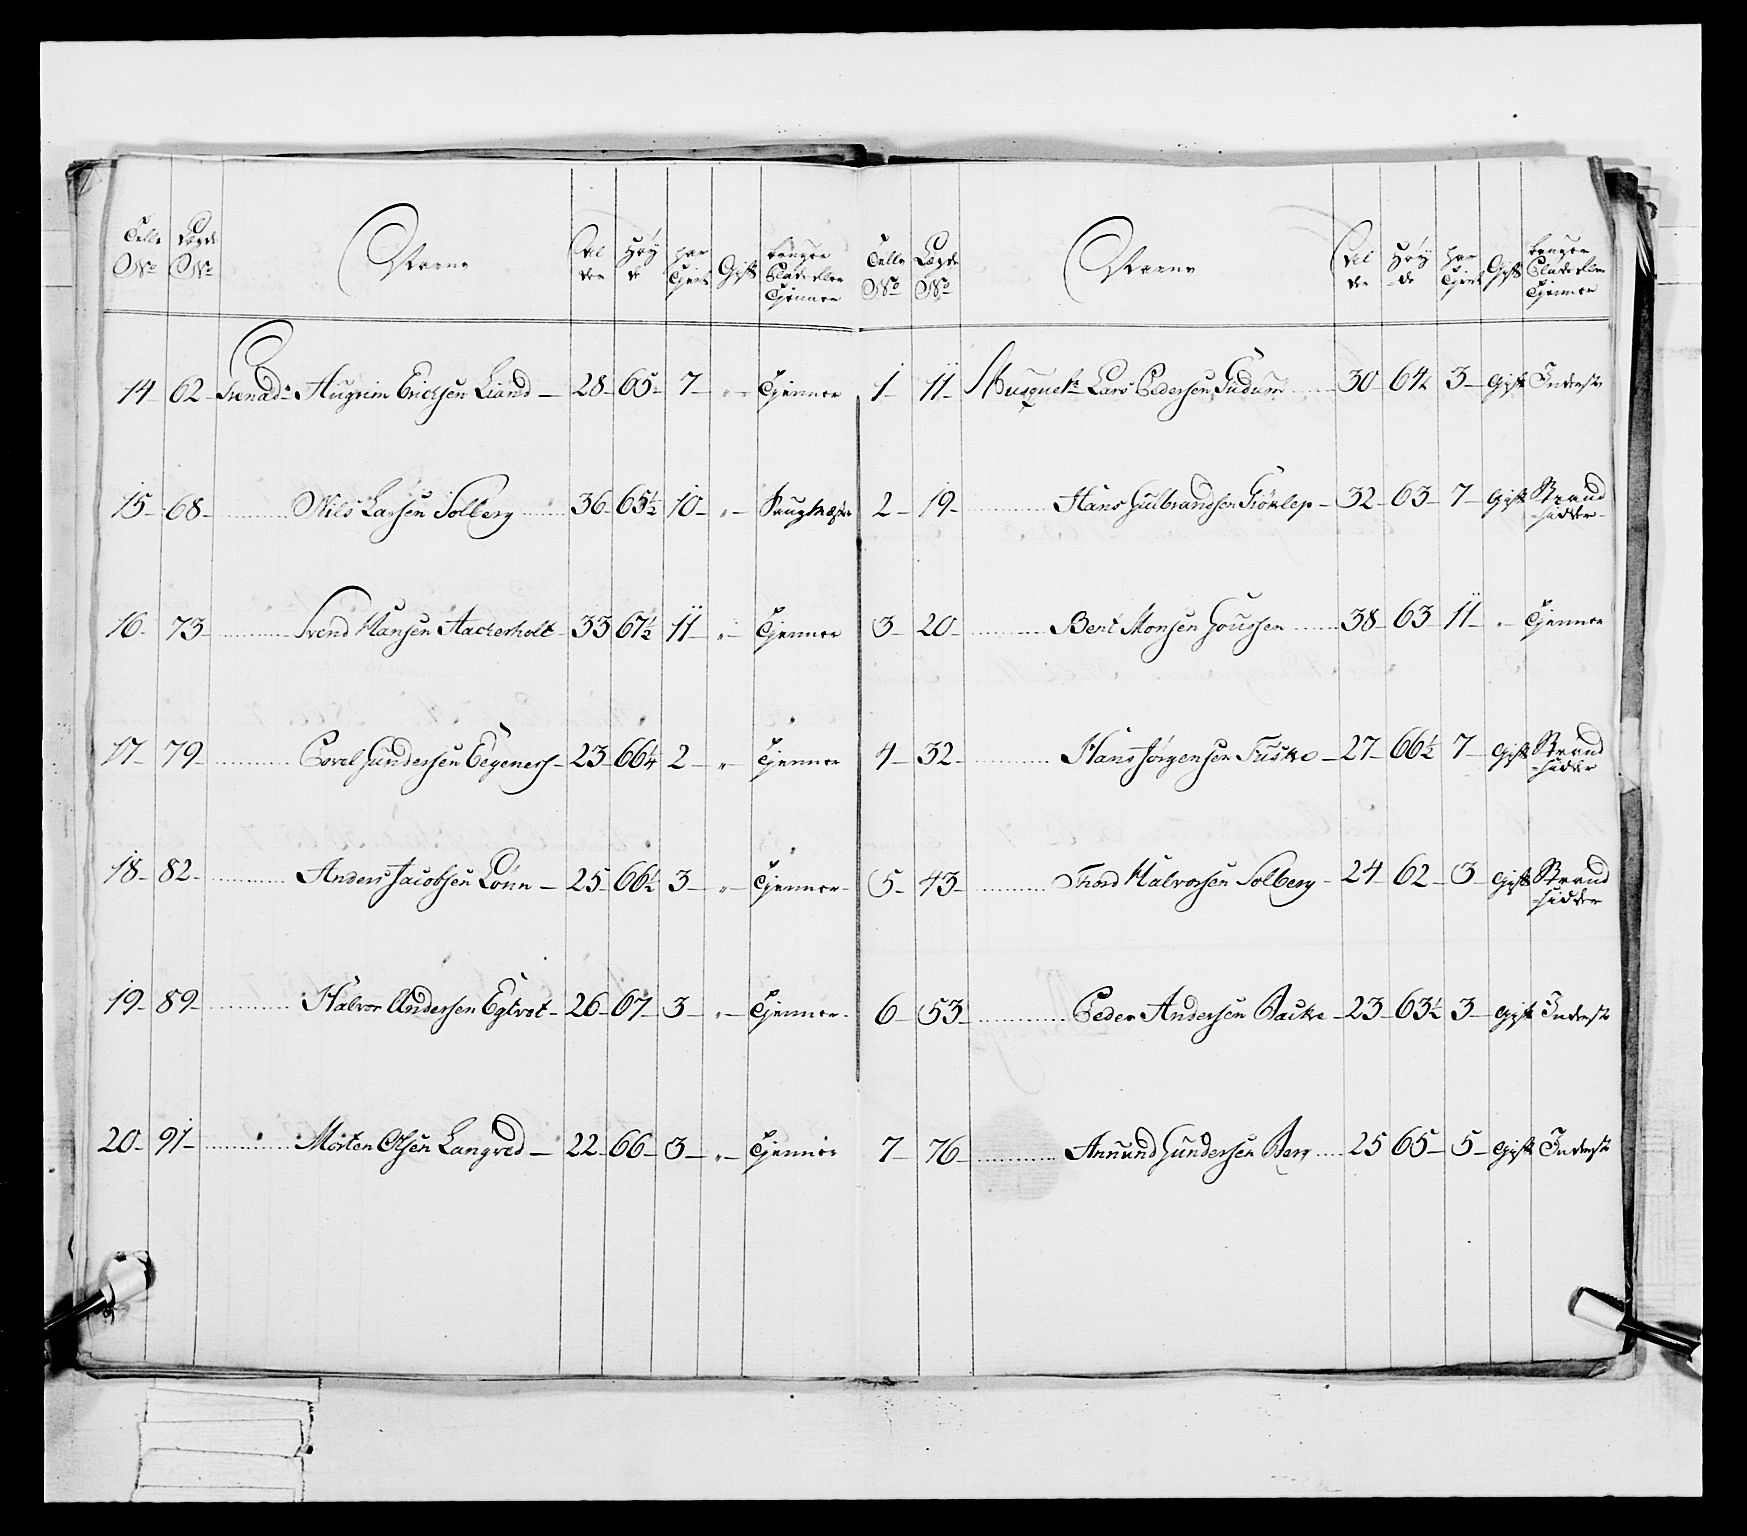 Tælle No Lægde No Navne Alder Høyde har Tient Gift bruger Plads eller Tienner
14 62 Grenadr Augrim Ericksen Liand 28 65 7 " Tienner
15 68 Nils Larsen Solberg 36 65½ 10 "
16 73 Svend Hansen Aackerholt 33 67½ 11 " Tienner
17 79 Povel Gundersen 23 66¼ 2 " Tienner
18 82 Anders Jacobsen Lønn 25 66½ 3 " Tienner
19 89 Halvor Andersen 26 67 3 " Tienner
20 91 Morten Olsen Langved 22 66 3 " Tienner
Tælle No Lægde No Navne Alder Høyde har Tient Gift bruger Plads eller Tienner
1 11 Musquetr Lars Pedersen Gudum 30 64½ 3 Gift Inderste
2 19 Hans Gulbrandsen 32 63 7 Gift Strand
sidder
3 20 Bent Monsen 38 63 11 " Tienner
4 32 Hans Jørgensen Fuske 27 66½ 7 Gift Strand
sidder
5 43 Trond Halvorsen Solberg 24 62 3 Gift Strand
sidder
6 53 Peder Andersen Backe 23 63½ 3 Gift Inderste
7 76 Annund Gundersen Berg 25 65 5 Gift Inderste